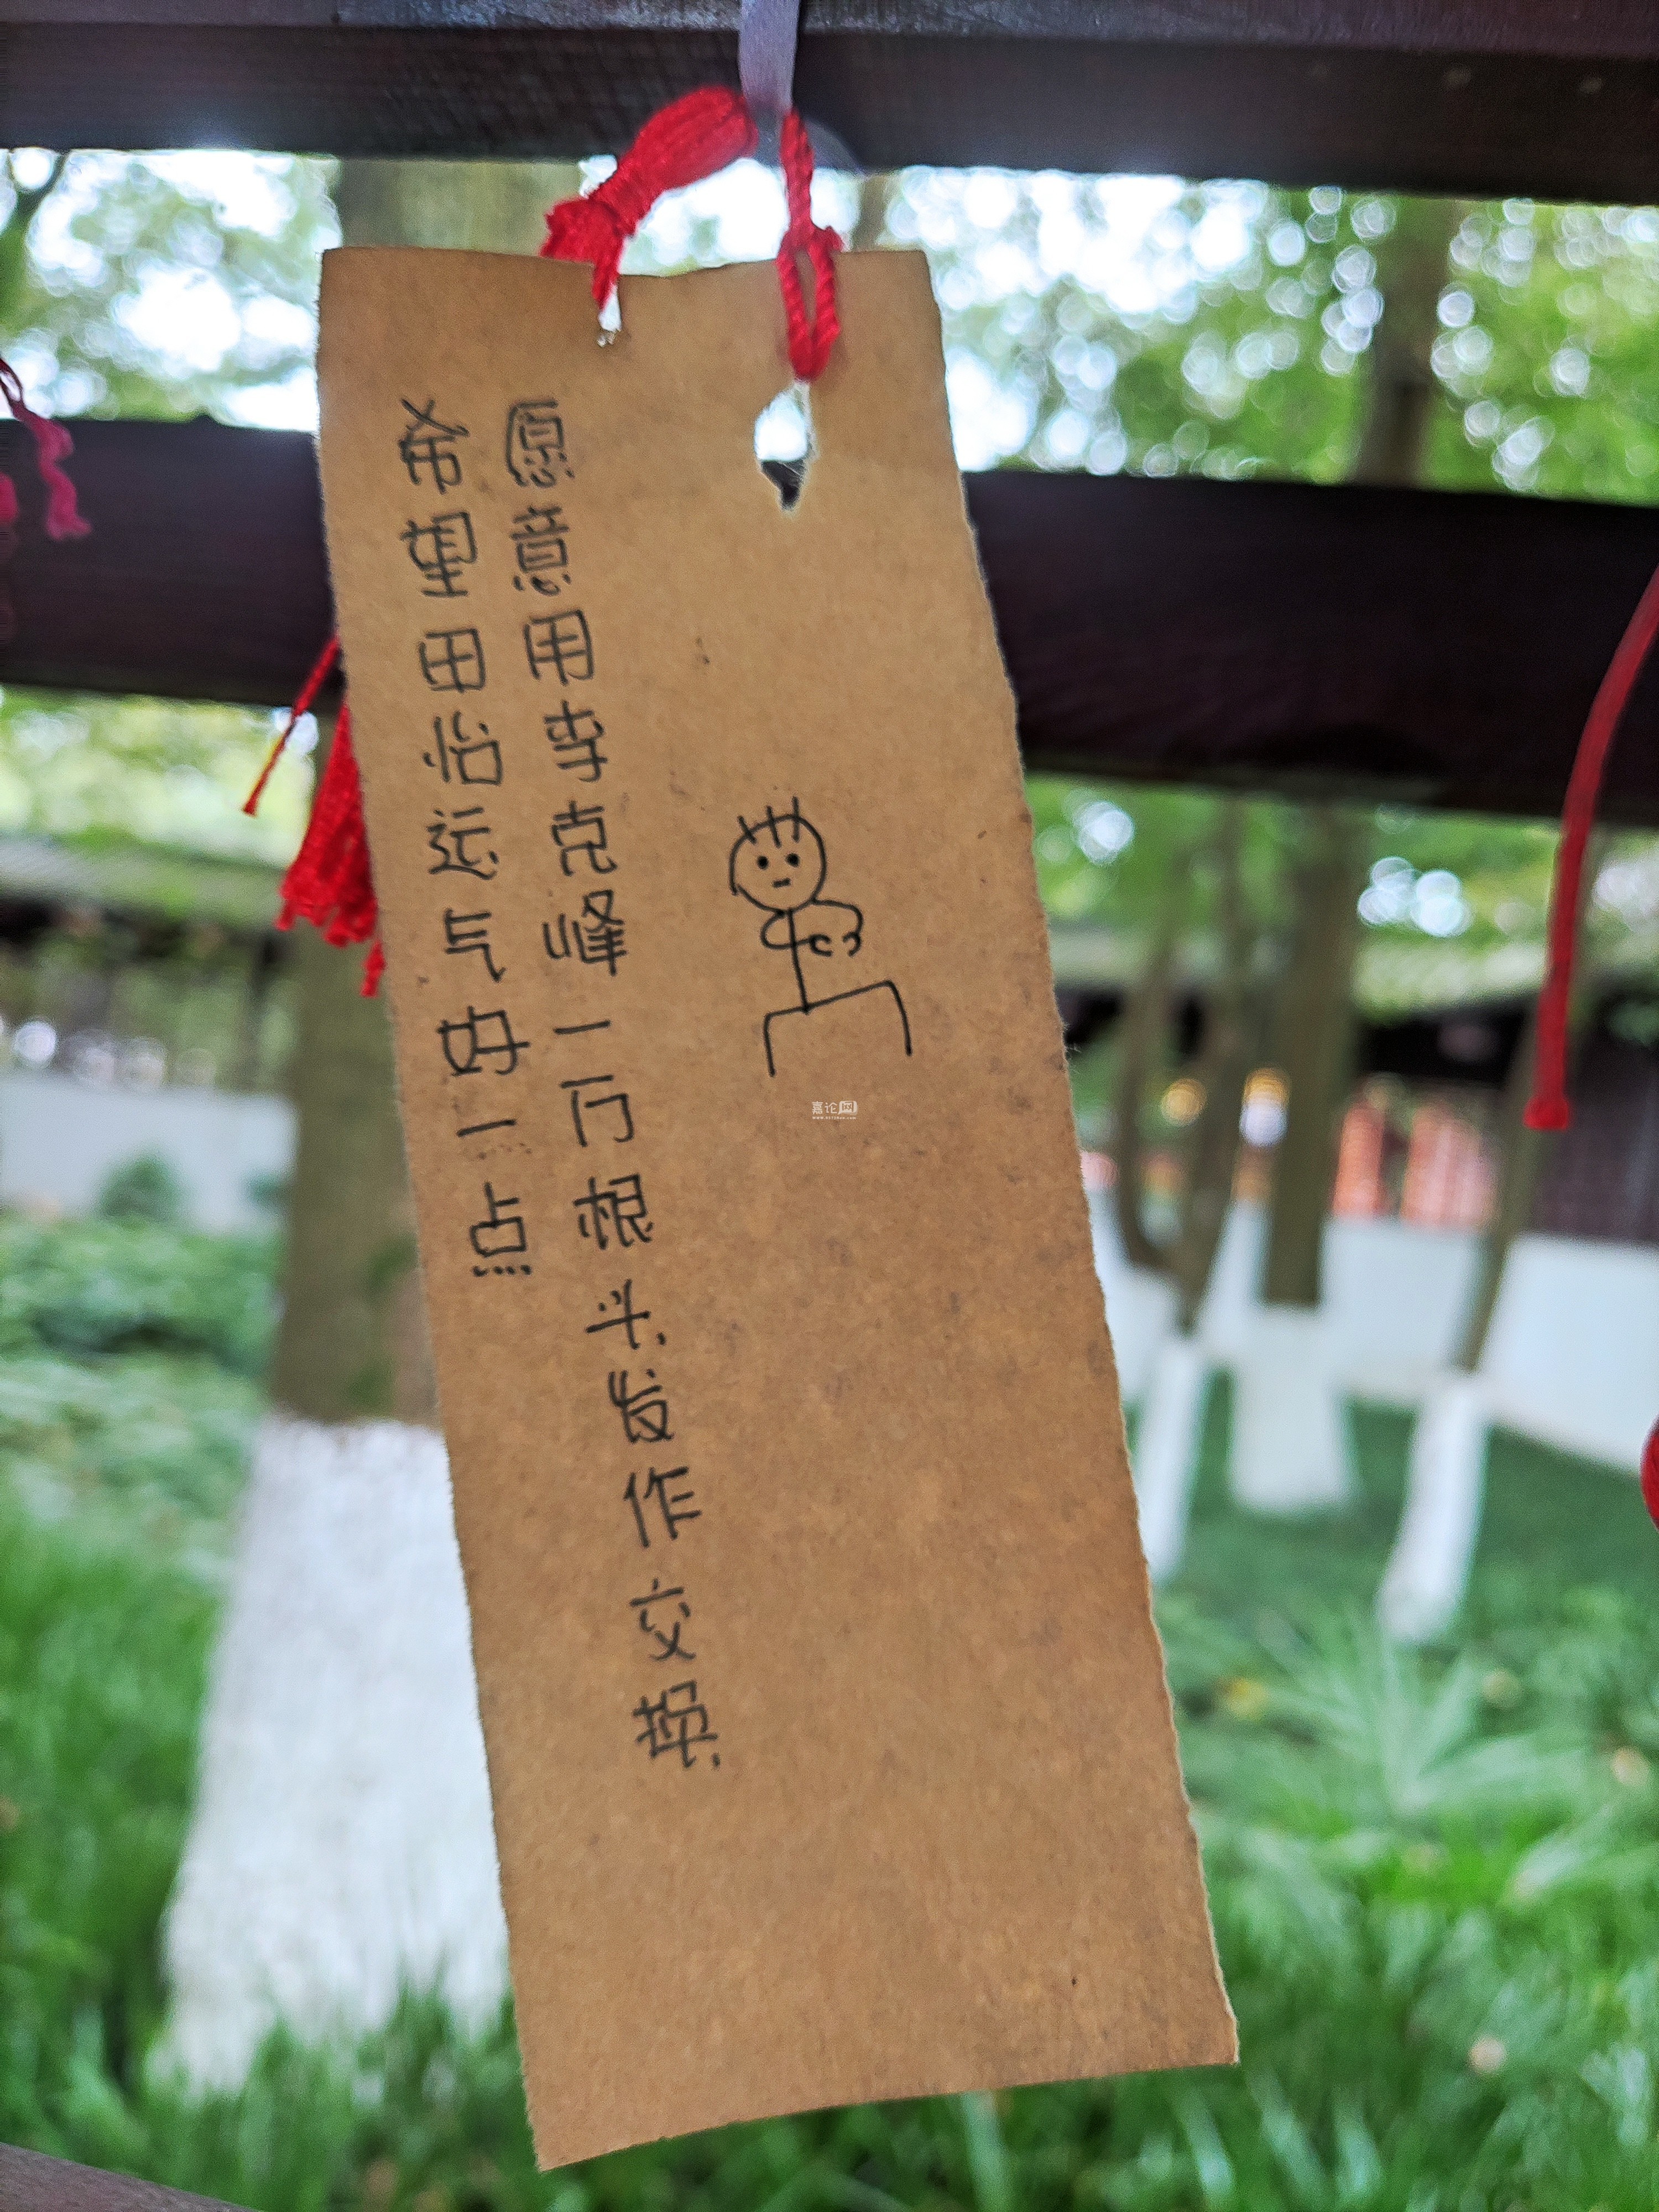 希望田怡运气好一点
愿意用李克峰一万根头发作交换
嘉论网